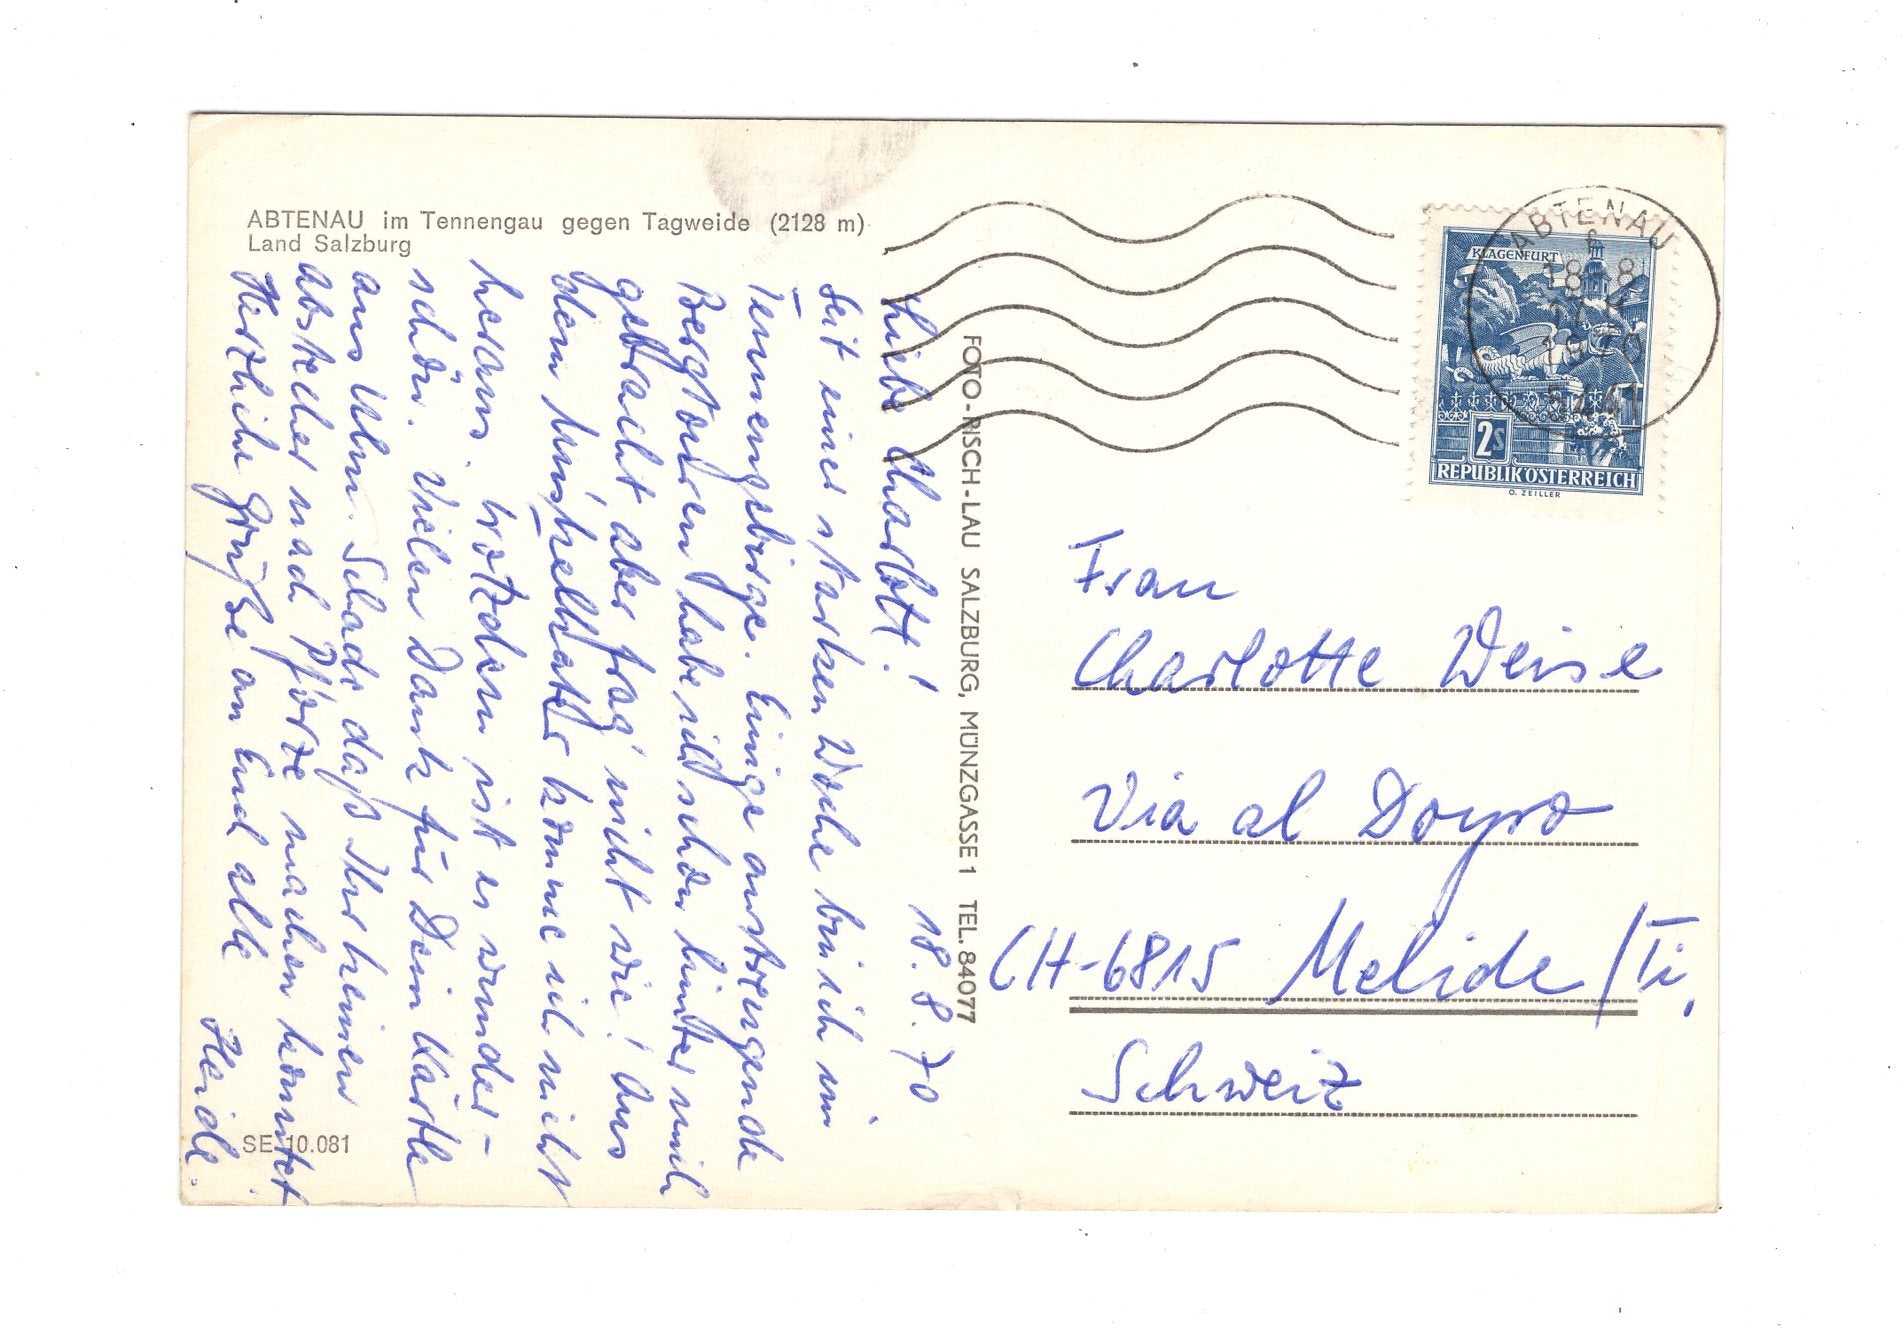 ABTENAU im Tennengau gegen Tagweide (2128 m)
Land Salzburg
18.8.70
Liebe Charlott!
Seit einer starken Woche bin ich im
Tennengebirge. Einige anstrengende
Bergtouren habe ich schon hinter mich
gebracht, aber frag' nicht wie! Aus
dem kommne ich nicht
heraus, trotzdem ist es wunder-
schön. Vielen Dank für Dein Kärtle
aus Ulm. Schade, daß Ihr keinen
Abstecher nach Pforze machen konntet.
Herzliche Grüße an Euch alle
Heide.
SE 10.081
FOTO-RISCH-LAU SALZBURG, MÜNZGASSE 1 TEL. 84077
ABTENAU
18.-8.
1970
5441
KLAGENFURT
2S
REPUBLIK ÖSTERREICH
O. ZEILLER
Frau
Charlotte Weise
Via al Doyro
CH-6815 Melide/Ti.
Schweiz